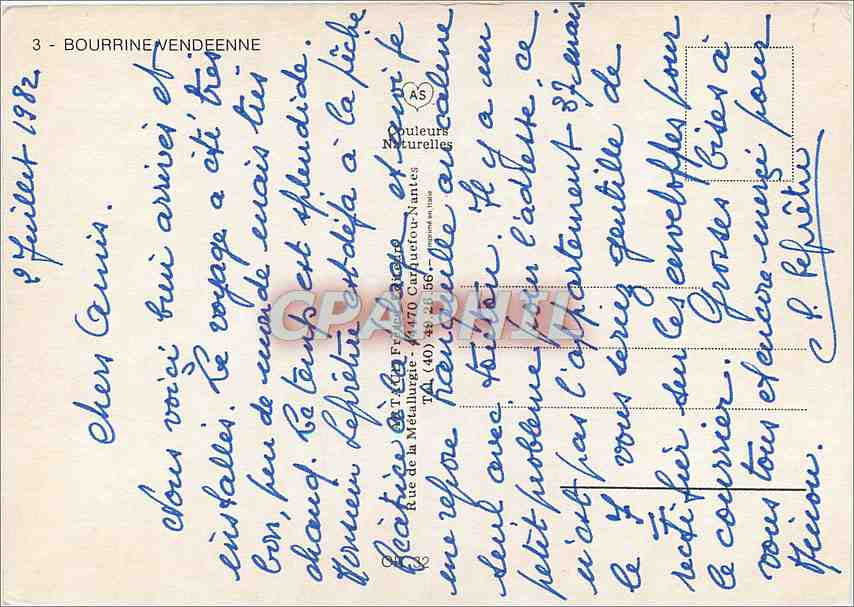 3 - BOURRINE VENDEENNE
AS
Couleurs
Naturelles
ARTAUD Frères Editeurs
Rue de la Métallurgie - 44470 Carquefou-Nantes
Tél. (40) 49-26-56 - Imprimé en Italie
CPAPHIL
32
2 Juillet 1982
Chers Amis.
Nous voici bien arrivés et
installés. Le voyage a été très
bon, peu de monde mais très
chaud. Le temps est splendide.
Monsieur Leprêtre est déjà à la pêche
Béatrice à la et ensuite
me repose tranquille au calme
seul avec toutou. Il y a un
petit problème pour l'adresse, ce
n'est pas l'appartement 37 mais
le 7 vous seriez gentille de
rectifier sur les enveloppes pour
le courrier. Grosses bises à
vous tous et encore merci pour
Minou.
Leprêtre